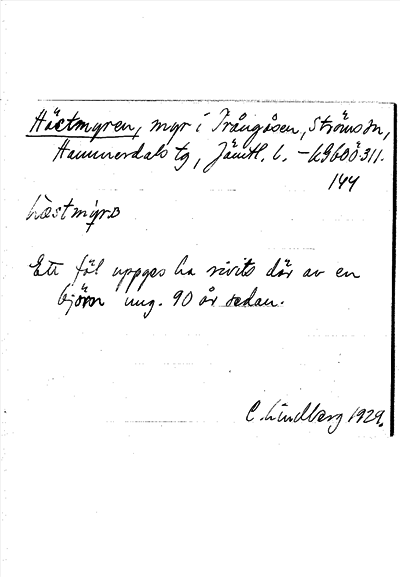 Hästmyren, myr i Trångåsen, Ströms sn,
Hammerdals tg, Jämtl. l. –
144
hæstmýrɒ
Ett föl uppges ha rivits där av en
björn ung. 90 år sedan.
C. Lindberg 1929.